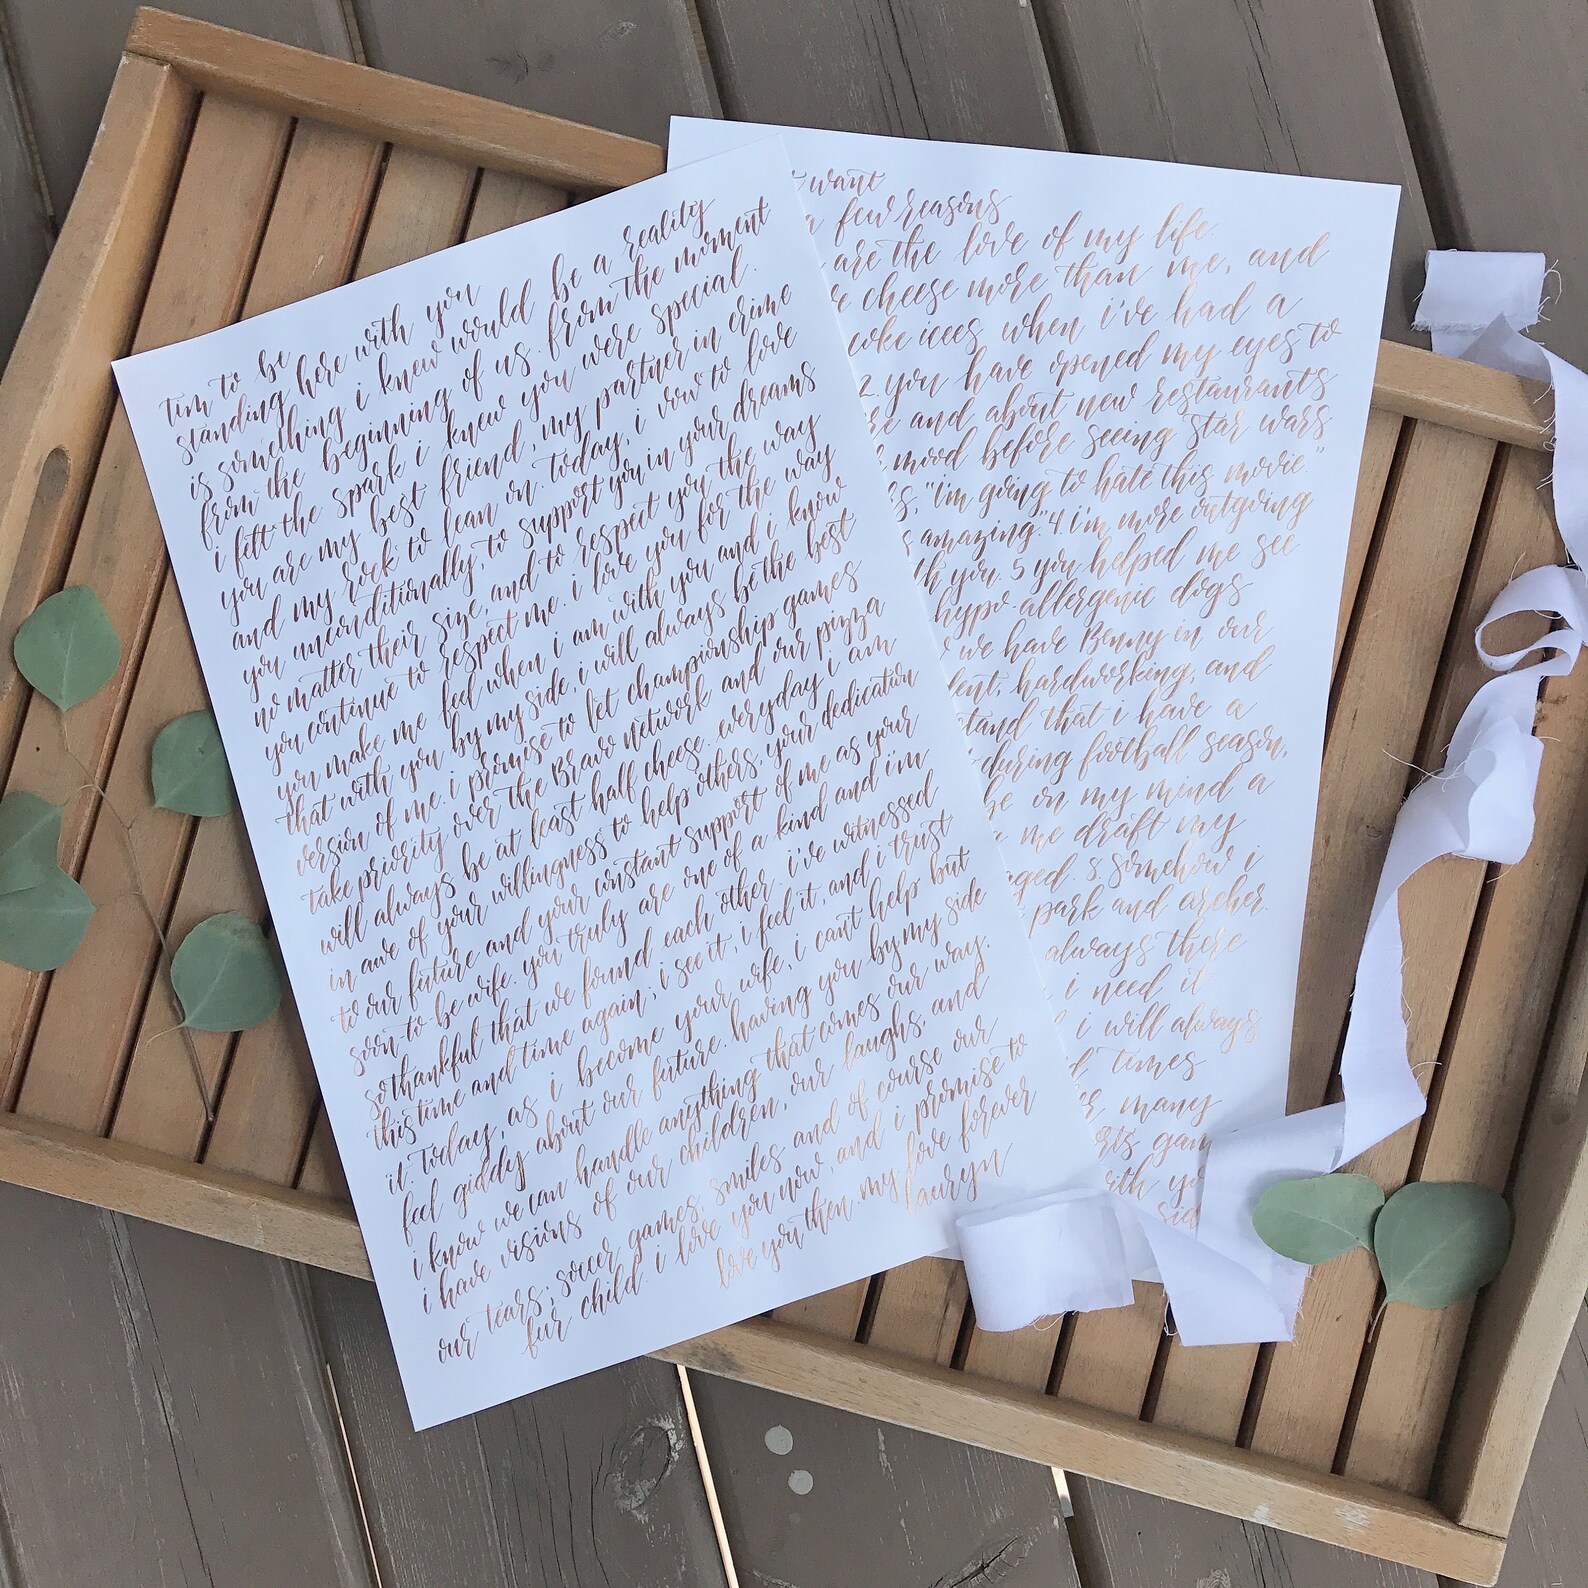 tim to be
standing here with you
is something i knew would be a reality
from the beginning of us. from the moment
i felt the spark i knew you were special.
you are my best friend, my partner in crime
and my rock to lean on. today, i vow to love
you unconditionally, to support you in your dreams
no matter their size, and to respect you the way
you continue to respect me. i love you for the way
you make me feel when i am with you and i know
that with you by my side, i will always be the best
version of me. i promise to let championship games
take priority over the Bravo network and our pizza
will always be at least half cheese. everyday i am
in awe of your willingness to help others, your dedication
to our future and your constant support of me as your
soon-to-be wife. you truly are one of a kind and i'm
so thankful that we found each other. i've witnessed
this time and time again; i see it, i feel it, and i trust
it. Today, as i become your wife, i can't help but
feel giddy about our future. having you by my side
i know we can handle anything that comes our way.
i have visions of our children, our laughs, and
our tears; soccer games, smiles and of course our
fur child. i love you now, and i promise to
love you then. my love forever
lauryn
want
a few reasons
are the love of my life.
cheese more than me, and
coke icees when i've had a
2. you have opened my eyes to
and about new restaurants
mood before seeing star wars
"i'm going to hate this movie."
amazing." 4 i'm more outgoing
you. 5 you helped me see
hypo-allergenic dogs
we have Benny in our
hardworking, and
that i have a
during football season,
be in my mind a
me draft my
8 somehow i
park and archer.
always there
i need it
i will always
times
many